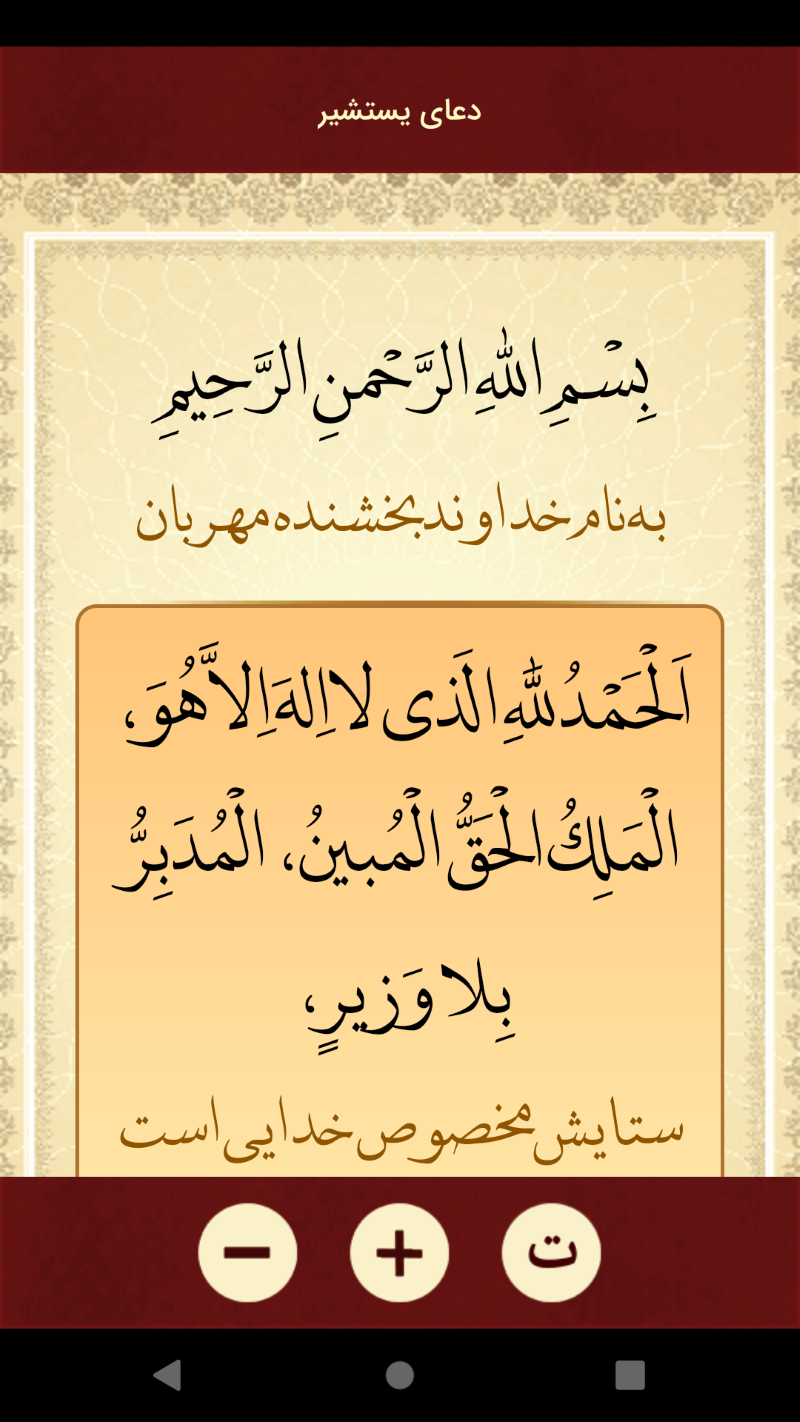 دعای یستشیر
بِسْمِ اللهِ الرَّحْمنِ الرَّحِیمِ
به نام خداوند بخشنده مهربان
اَلْحَمْدُ لِلّٰهِ الَّذی لا اِلهَ اِلاَّ هُوَ،
الْمَلِکُ الْحَقُّ الْمُبینُ، الْمُدَبِرُّ
بِلا وَزیرٍ،
ستایش مخصوص خدایی است
ت
+
−